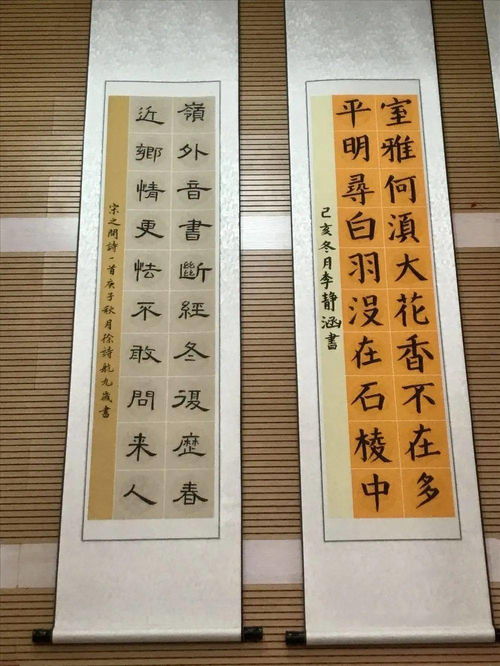 室雅何湏大花香不在多
平明尋白羽没在石棱中
己亥冬月李静涵書
嶺外音書斷經冬復歷春
近鄉情更怯不敢問来人
宋之問詩一首庚子秋月徐詩航九歲書